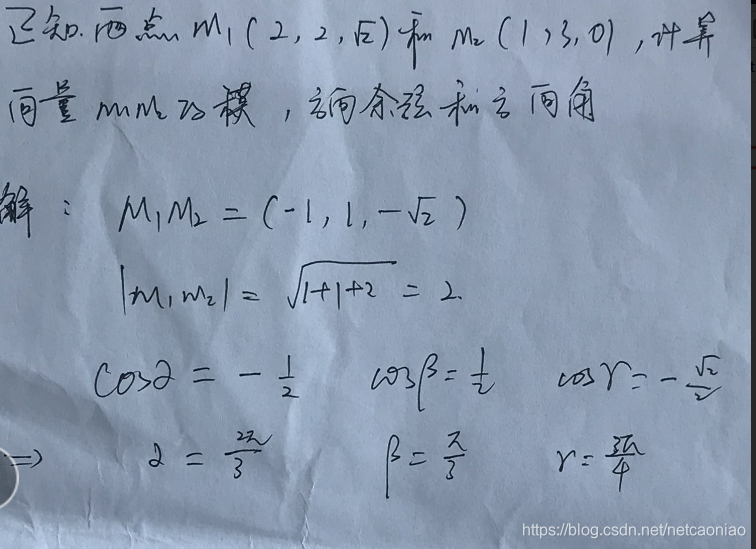 已知两点 M₁(2,2,√2)和 M₂(1,3,0),计算
向量 M₁M₂的模,方向余弦和方向角
解: M₁M₂ = (-1, 1, -√2)
|M₁M₂| = √(1+1+2) = 2.
cos α = - 1/2 cos β = 1/2 cos γ = - √2/2
⇒ α = 2π/3 β = π/3 γ = 3π/4
https://blog.csdn.net/netcaoniao